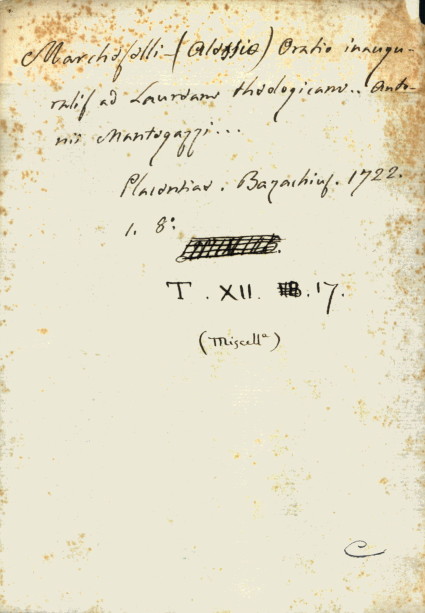 Marcheselli (Alessio) Oratio inaugu-
ralis ad Lauream theologicam.. Anto-
nii Mantegazzi...
Placentiae. Bazachius. 1722.
1. 8°
T. XII. .17.
(Miscellª)
C